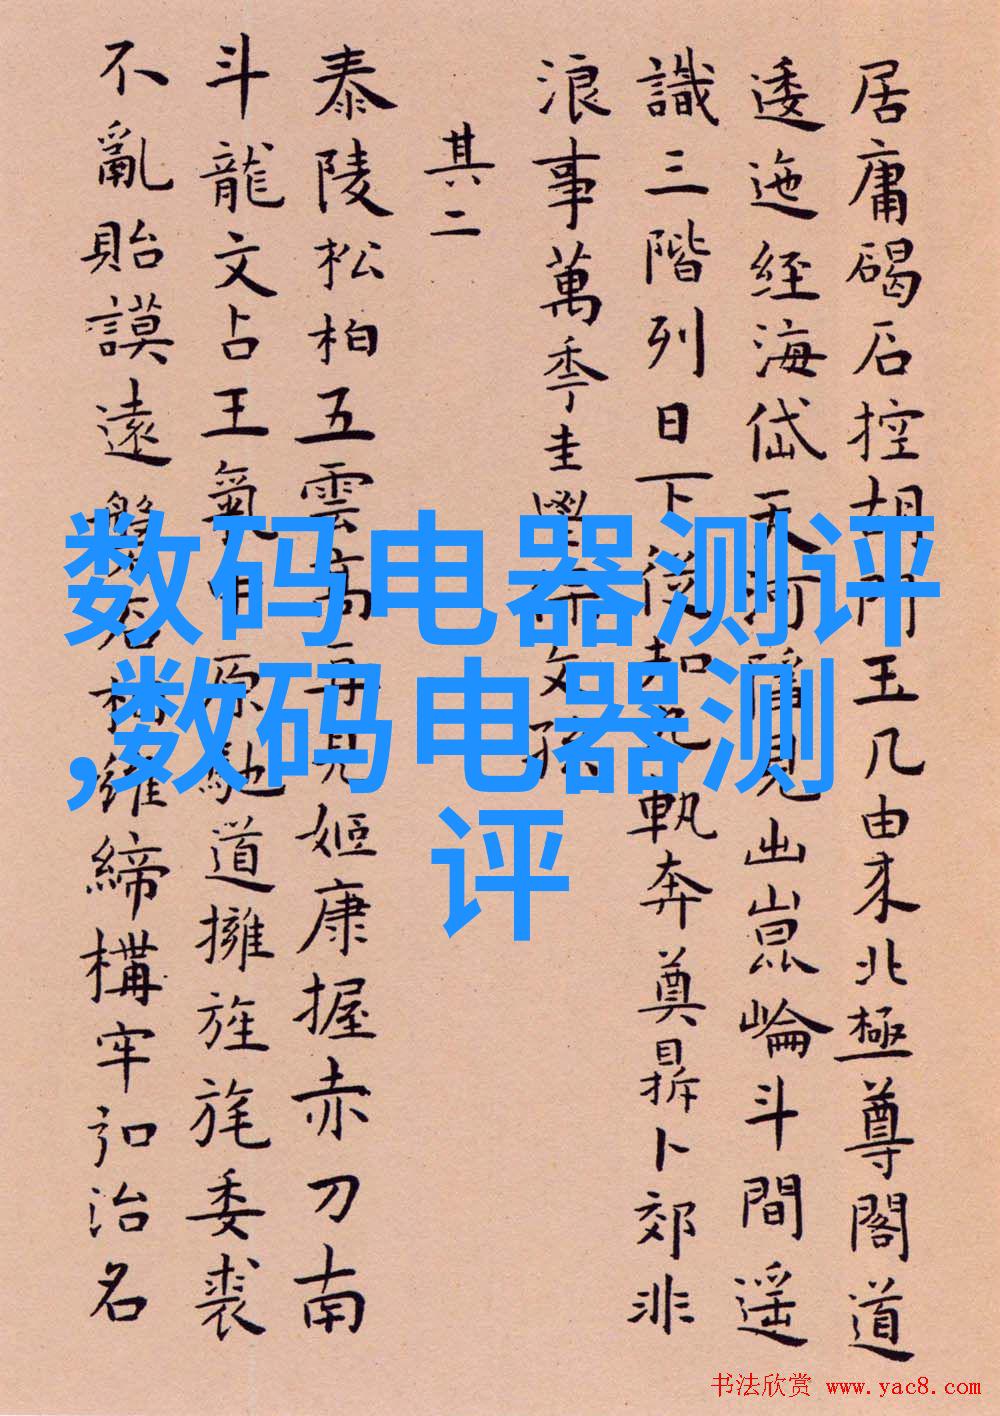 居庸碣石控胡門王几由来北極尊閣道
逶迤經海岱天河眉見出崑崙斗間遥
識三階列日下後知執奔奠鼎卜郊非
浪事萬季圭文孫
其二
泰陵松柏五雲高再見姬康握赤刀南
斗龍文占王氣中原馳道擁旌旄委裘
不亂貽謨遠維締構牢扣治名
数码电器测评
,数码电器测
评
书法欣赏 www.yac8.com